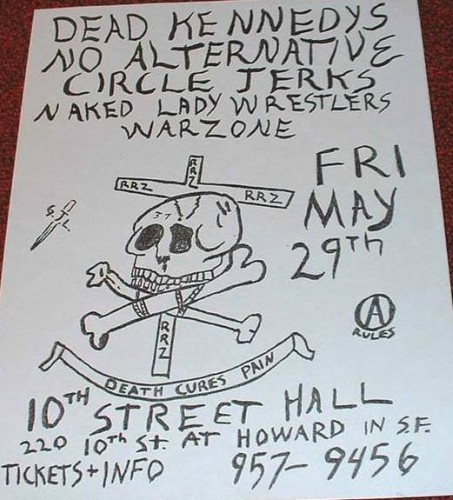 DEAD KENNEDYS
NO ALTERNATIVE
CIRCLE JERKS
NAKED LADY WRESTLERS
WARZONE
FRI
MAY
29TH
RRZ
RRZ
RRZ
RRZ
DEATH CURES PAIN
A
RULES
10TH STREET HALL
220 10th St. AT HOWARD IN S.F.
TICKETS+INFO 957-9456